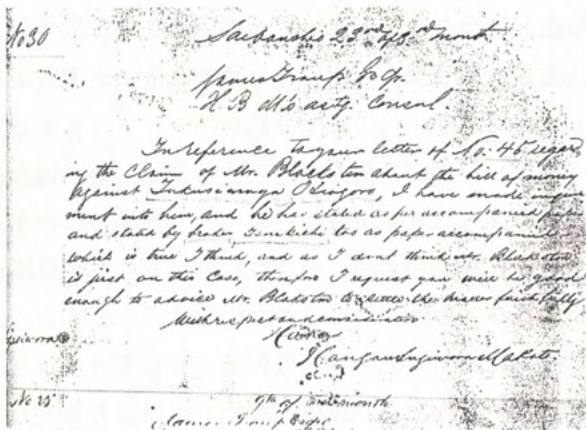 No 30
Saibansho 23rd of 3rd month
James Troup Esqr.
H B M's actg. Consul.
In reference to your letter of No. 45 regard
ing the Claim of Mr. Blackston about the bill of money
against I have made
ment into him, and he has stated as per accompanied
and stated by broker too as paper accompanied
which is true I think, and as I dont think Mr. Blakston
is just on this Case, therefore I request you will be good
enough to advice Mr. Blakston to settle the matter faithfully
With respect and consideration
No 25
9th of month
James Troup Esqr